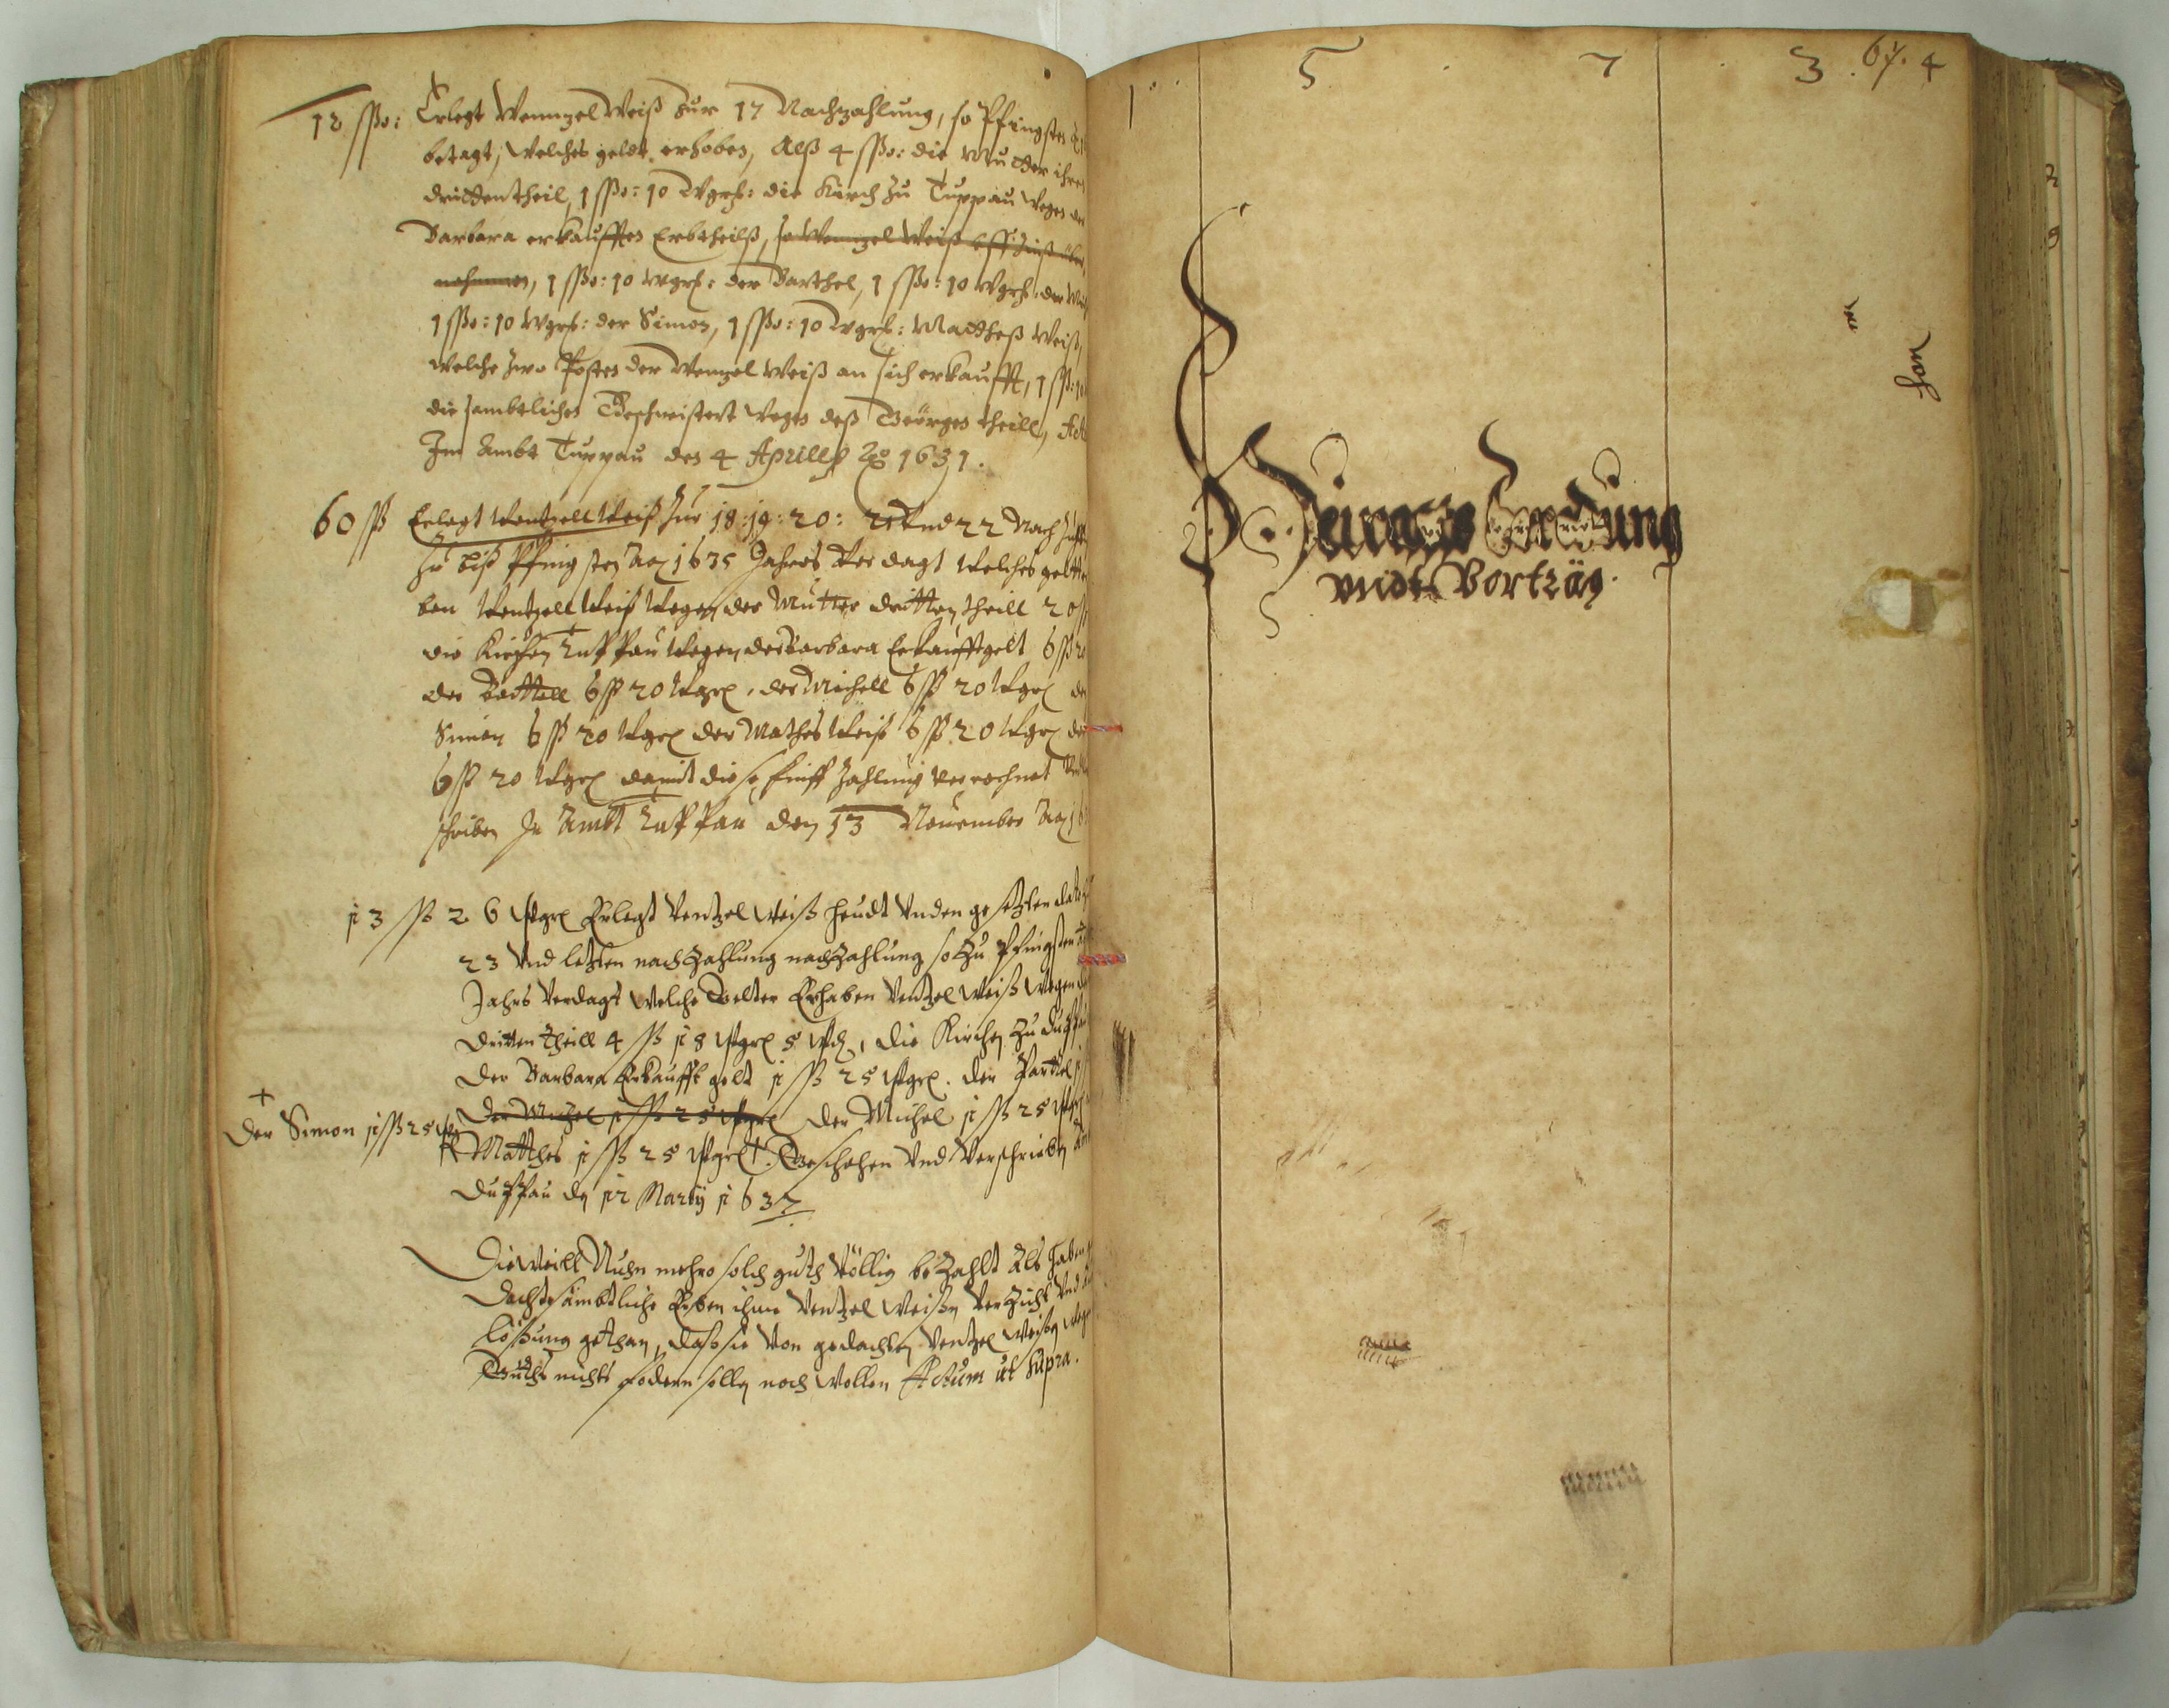 12 ßo: Erlegt Wenntzel Weiß zur 17 Nachzahlung, so Pfingsten
betagt, welches geldt erhoben, Alß 4 ßo: die Mutter ihren
dritten theil, 1 ßo: 10 Wgrl: die Kirch zu Tuppau wegen der
Barbara erkaufften Erbtheilß, so Wenntzel Weiß
nehmen, 1 ßo: 10 Wgrl: der Barthel, 1 ßo: 10 Wgrl: der
1 ßo: 10 Wgrl: der Simon, 1 ßo: 10 Wgrl: Matthes Weiß,
welche zwo Posten der Wentzel Weiß an sich erkaufft, 1 ß: 10
die sambtlichen Geschwistert wegen deß Geörgen theill,
Im Ambt Tuppau den 4 Aprillß Ao 1631.
60 ß Erlegt Wentzell Weiß zur 18: 19: 20: 21 Vnd 22 Nach
zu biß Pfingsten Ao 1635 Jahres Verdagt Welches
ben Wentzell Weiß Wegen der Mutter dritten theill 20 ß
die Kirchen Tuppau Wegen der Barbara Erkaufftgelt 6 ß 20
der Barttell 6 ß 20 Wgrl, der Michell 6 ß 20 Wgrl der
Simon 6 ß 20 Wgrl der Mathes Weiß 6 ß 20 Wgrl der
6 ß 20 Wgrl damit diese funff Zahlung verrechnet
schriben In Ambt Tuppau den 13 November Ao
13 ß 26 Wgrl Erlegt Wentzel Weiß heudt Vnden gesetzten dato
23 Vnd letzten nachzahlung nachzahlung so zu Pfingsten
Jahrs Verdagt Welche Gelter Erhaben Wentzel Weiß Wegen
dritten theill 4 ß 18 Wgrl 5 Wd, die Kirchen zu Duppau
der Barbara Erkaufft gelt 1 ß 25 Wgrl. der Parttel
der Michel 1 ß 25 Wgrl der Michel 1 ß 25 Wgrl
+ der Simon 1 ß 25
Matthes 1 ß 25 Wgrl +. Geschehen Vnd Verschrieben
Duppau den 12 Martij 1637
Dieweill Nuhn mehro solch guth Völlig bezahlt Als haben
dachte sämbtliche Erben ihme Wentzel Weißen Verzicht Vnd
loßung gethan, daß sie Von gedachten Wentzel Weißen wegen
Guths nichts fodern sollen noch Wollen Actum ut supra.
1 . 5 . 7 . 3 . 67. 4
Heirats Beredung
vnndt Vorträg.